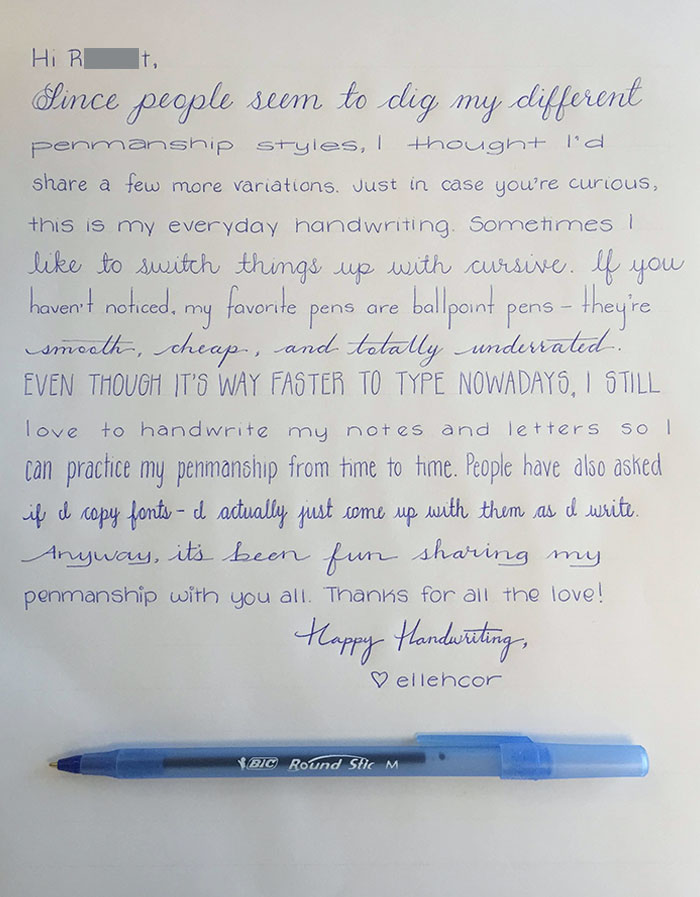 Hi R t,
Since people seem to dig my different
penmanship styles, I thought I'd
share a few more variations. Just in case you're curious,
this is my everyday handwriting. Sometimes I
like to switch things up with cursive. If you
haven't noticed, my favorite pens are ballpoint pens - they're
smooth, cheap, and totally underrated.
EVEN THOUGH IT'S WAY FASTER TO TYPE NOWADAYS, I STILL
love to handwrite my notes and letters so I
can practice my penmanship from time to time. People have also asked
if I copy fonts - I actually just come up with them as I write.
Anyway, it's been fun sharing my
penmanship with you all. Thanks for all the love!
Happy Handwriting,
♡ ellehcor
BIC Round Stic M